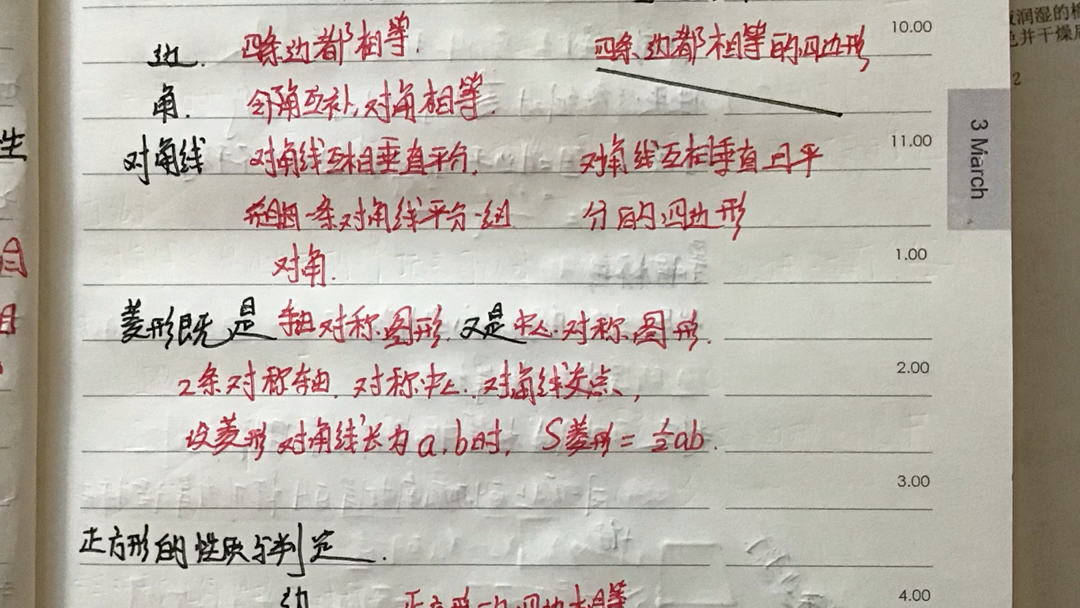 10.00
边. 四条边都相等. 四条边都相等的四边形
角. 邻角互补,对角相等.
对角线 对角线互相垂直平分, 对角线互相垂直且平
11.00
一条对角线平分一组 分的四边形
对角.
1.00
菱形既是轴对称图形.又是中心对称图形.
2条对称轴.对称中心.对角线交点,
2.00
设菱形对角线长为a.b时, S菱形=½ab.
3.00
正方形的性质与判定.
4.00
边 正方形 四边相等
3 March
生
润湿的
并干燥
2